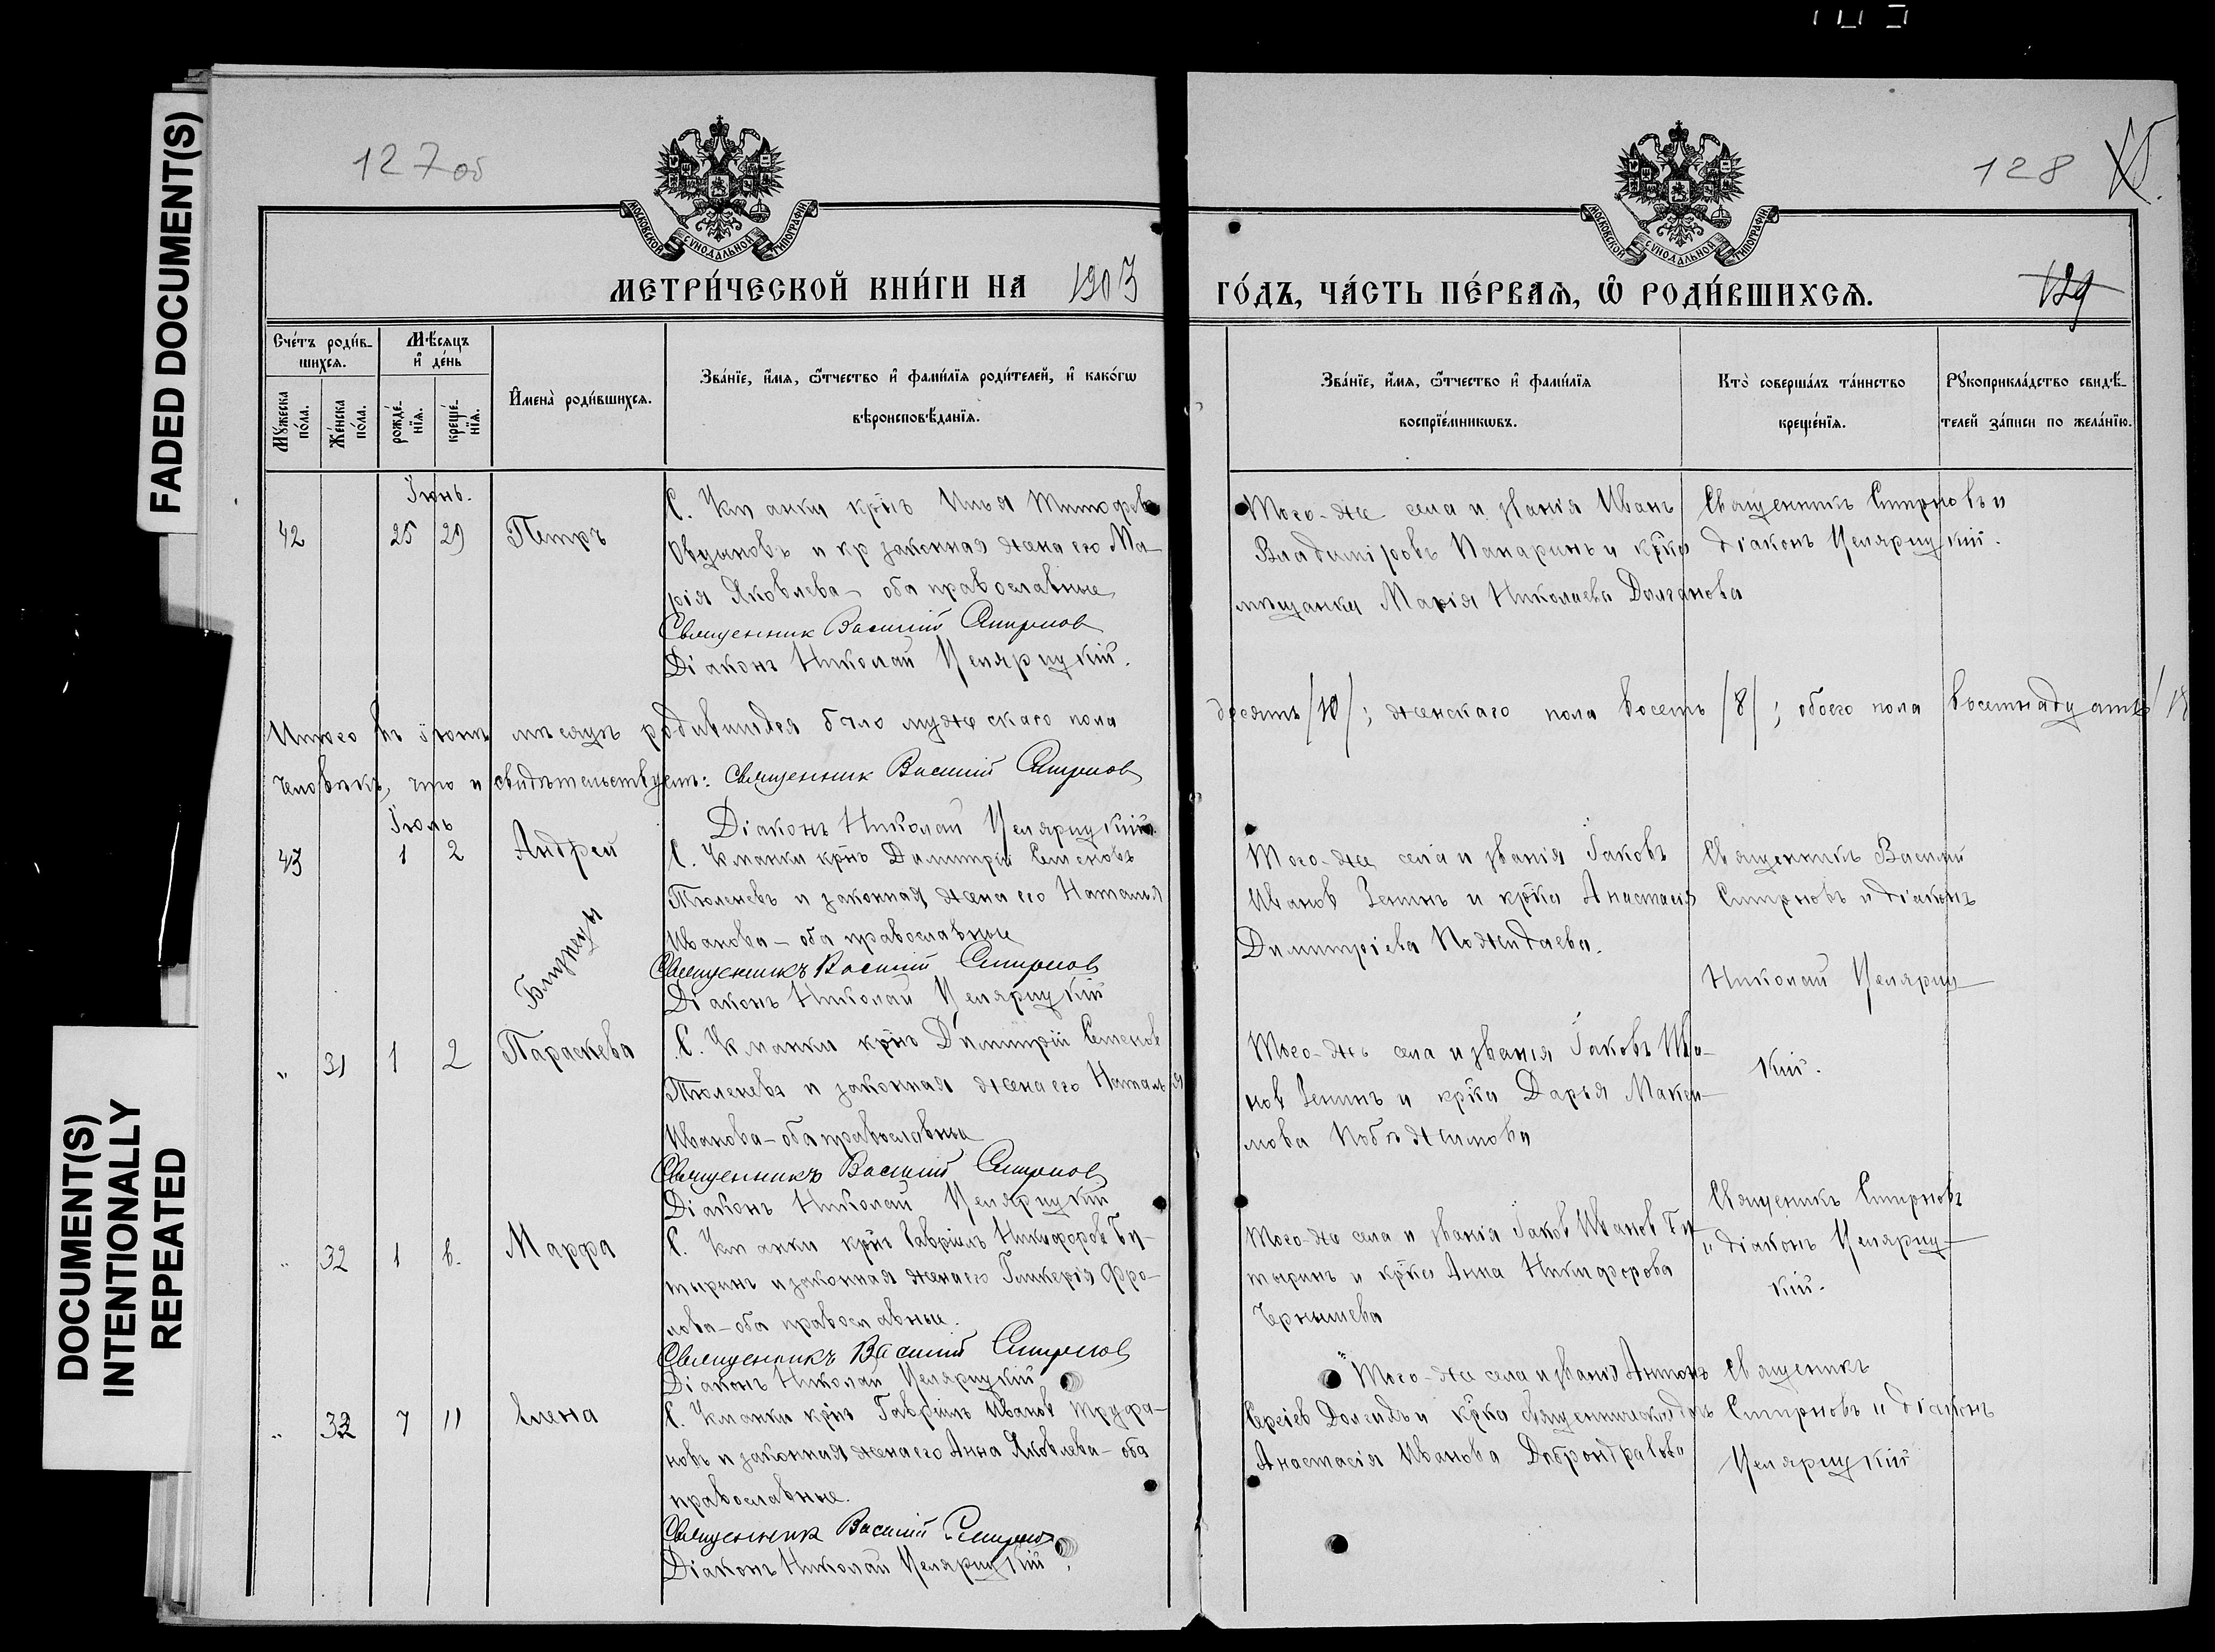 FADED DOCUMENT(S)
DOCUMENT(S)
INTENTIONALLY
REPEATED
127 об
128
129
МОСКОВСКОЙ СѴНОДАЛЬНОЙ ТИПОГРАФІИ
МОСКОВСКОЙ СѴНОДАЛЬНОЙ ТИПОГРАФІИ
МЕТРИ́ЧЕСКОЙ КНИ́ГИ НА 1903
ГО́ДЪ, ЧА́СТЬ ПЕ́РВАѦ, Ѽ РОДИ́ВШИХСѦ.
Сче́тъ роди́в-
шихсѧ.
Мꙋжеска
по́ла.
Же́нска
по́ла.
Мѣ́сѧцъ
и҆ де́нь
рожде́-
нїѧ.
креще́-
нїѧ.
И҆мена̀ роди́вшихсѧ.
Зва́нїе, и҆́мѧ, ѻ҆́тчество и҆ фами́лїѧ роди́телей, и҆ како́гѡ
вѣроисповѣ́данїѧ.
Зва́нїе, и҆́мѧ, ѻ҆́тчество и҆ фами́лїѧ
воспрїе́мникѡвъ.
Кто̀ соверша́лъ та́инство
креще́нїѧ.
Рꙋкоприкла́дство свидѣ́-
телей за́писи по жела́нїю.
Іюнь.
42 25 29 Петръ
С. Укманки кр̃нъ Илья Тимофеевъ
и кр законная жена его Ма-
рія Яковлева - оба православные
Священник Василий Смирнов
Діаконъ Николай Целярицкій.
Того-же села и званія Иванъ
Владиміровъ Панаринъ и кр̃ка
мѣщанка Марія Николаева Долганова
Священникъ Смирновъ и
діаконъ Целярицкій.
Итого въ іюнѣ мѣсяцѣ родившихся было мужескаго пола десять /10/; женскаго пола восемь /8/; обоего пола восемнадцать /18
человѣкъ, что и свидѣтельствуемъ: Священник Василий Смирнов
Діаконъ Николай Целярицкій.
Іюль
43 1 2 Андрей
Близнецы
С. Укманки кр̃нъ Димитрій Семеновъ
Тюленевъ и законная жена его Наталья
Иванова - оба православные
Священникъ Василий Смирнов
Діаконъ Николай Целярицкій
Того-же села и званія Іаковъ
Иванов Зенинъ и кр̃ка Анастасія
Димитріева Пожидаева.
Священникъ Василій
Смирновъ и діаконъ
Николай Целяриц-
кій.
" 31 1 2 Параскева
С. Укманки кр̃нъ Димитрій Семенов
Тюленевъ и законная жена его Наталья
Иванова - оба православные
Священникъ Василий Смирнов
Діаконъ Николай Целярицкій
Того-же села и званія Іаковъ Ива-
нов Зенинъ и кр̃ка Дарья Макси-
мова
" 32 1 6. Марфа
С. Укманки кр̃нъ Гавріилъ Никифоров Бу-
тыринъ и законная жена его Гликерія Фро-
лова - оба православные.
Священникъ Василий Смирнов
Діаконъ Николай Целярицкій
Того-же села и званія Іаков Иванов Бу-
тыринъ и кр̃ка Анна Никифорова
Чернышева
Священникъ Смирновъ
и діаконъ Целяриц-
кій.
" 33 7 11 Елена
С. Укманки кр̃нъ Гавріилъ Иванов Труфа-
новъ и законная жена его Анна Яковлева - оба
православные.
Священник Василий Смирнов
Діаконъ Николай Целярицкій.
Того-же села и званія Антонъ
Сергіев и кр̃ка священническая дочь
Анастасія Иванова Добронравова
Священникъ
Смирновъ и діаконъ
Целярицкій